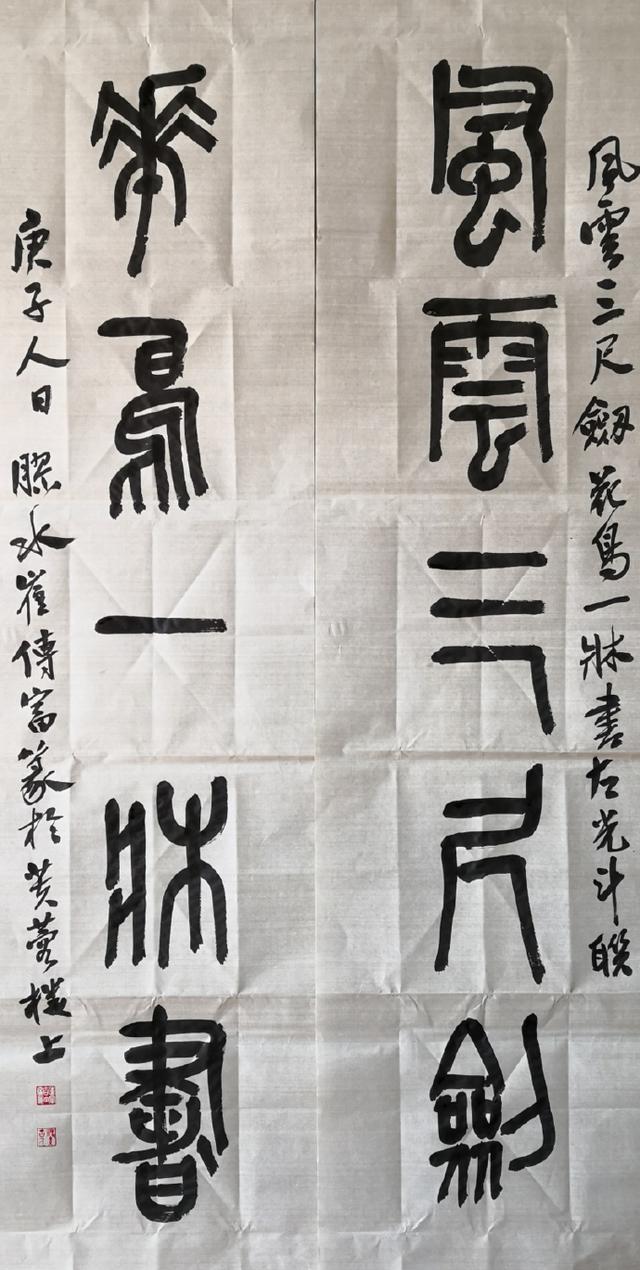 風雲三尺劒花鳥一牀書左光斗聯
風雲三尺劍
花鳥一牀書
庚子人日膠水崔傳富篆於芙蓉樓上